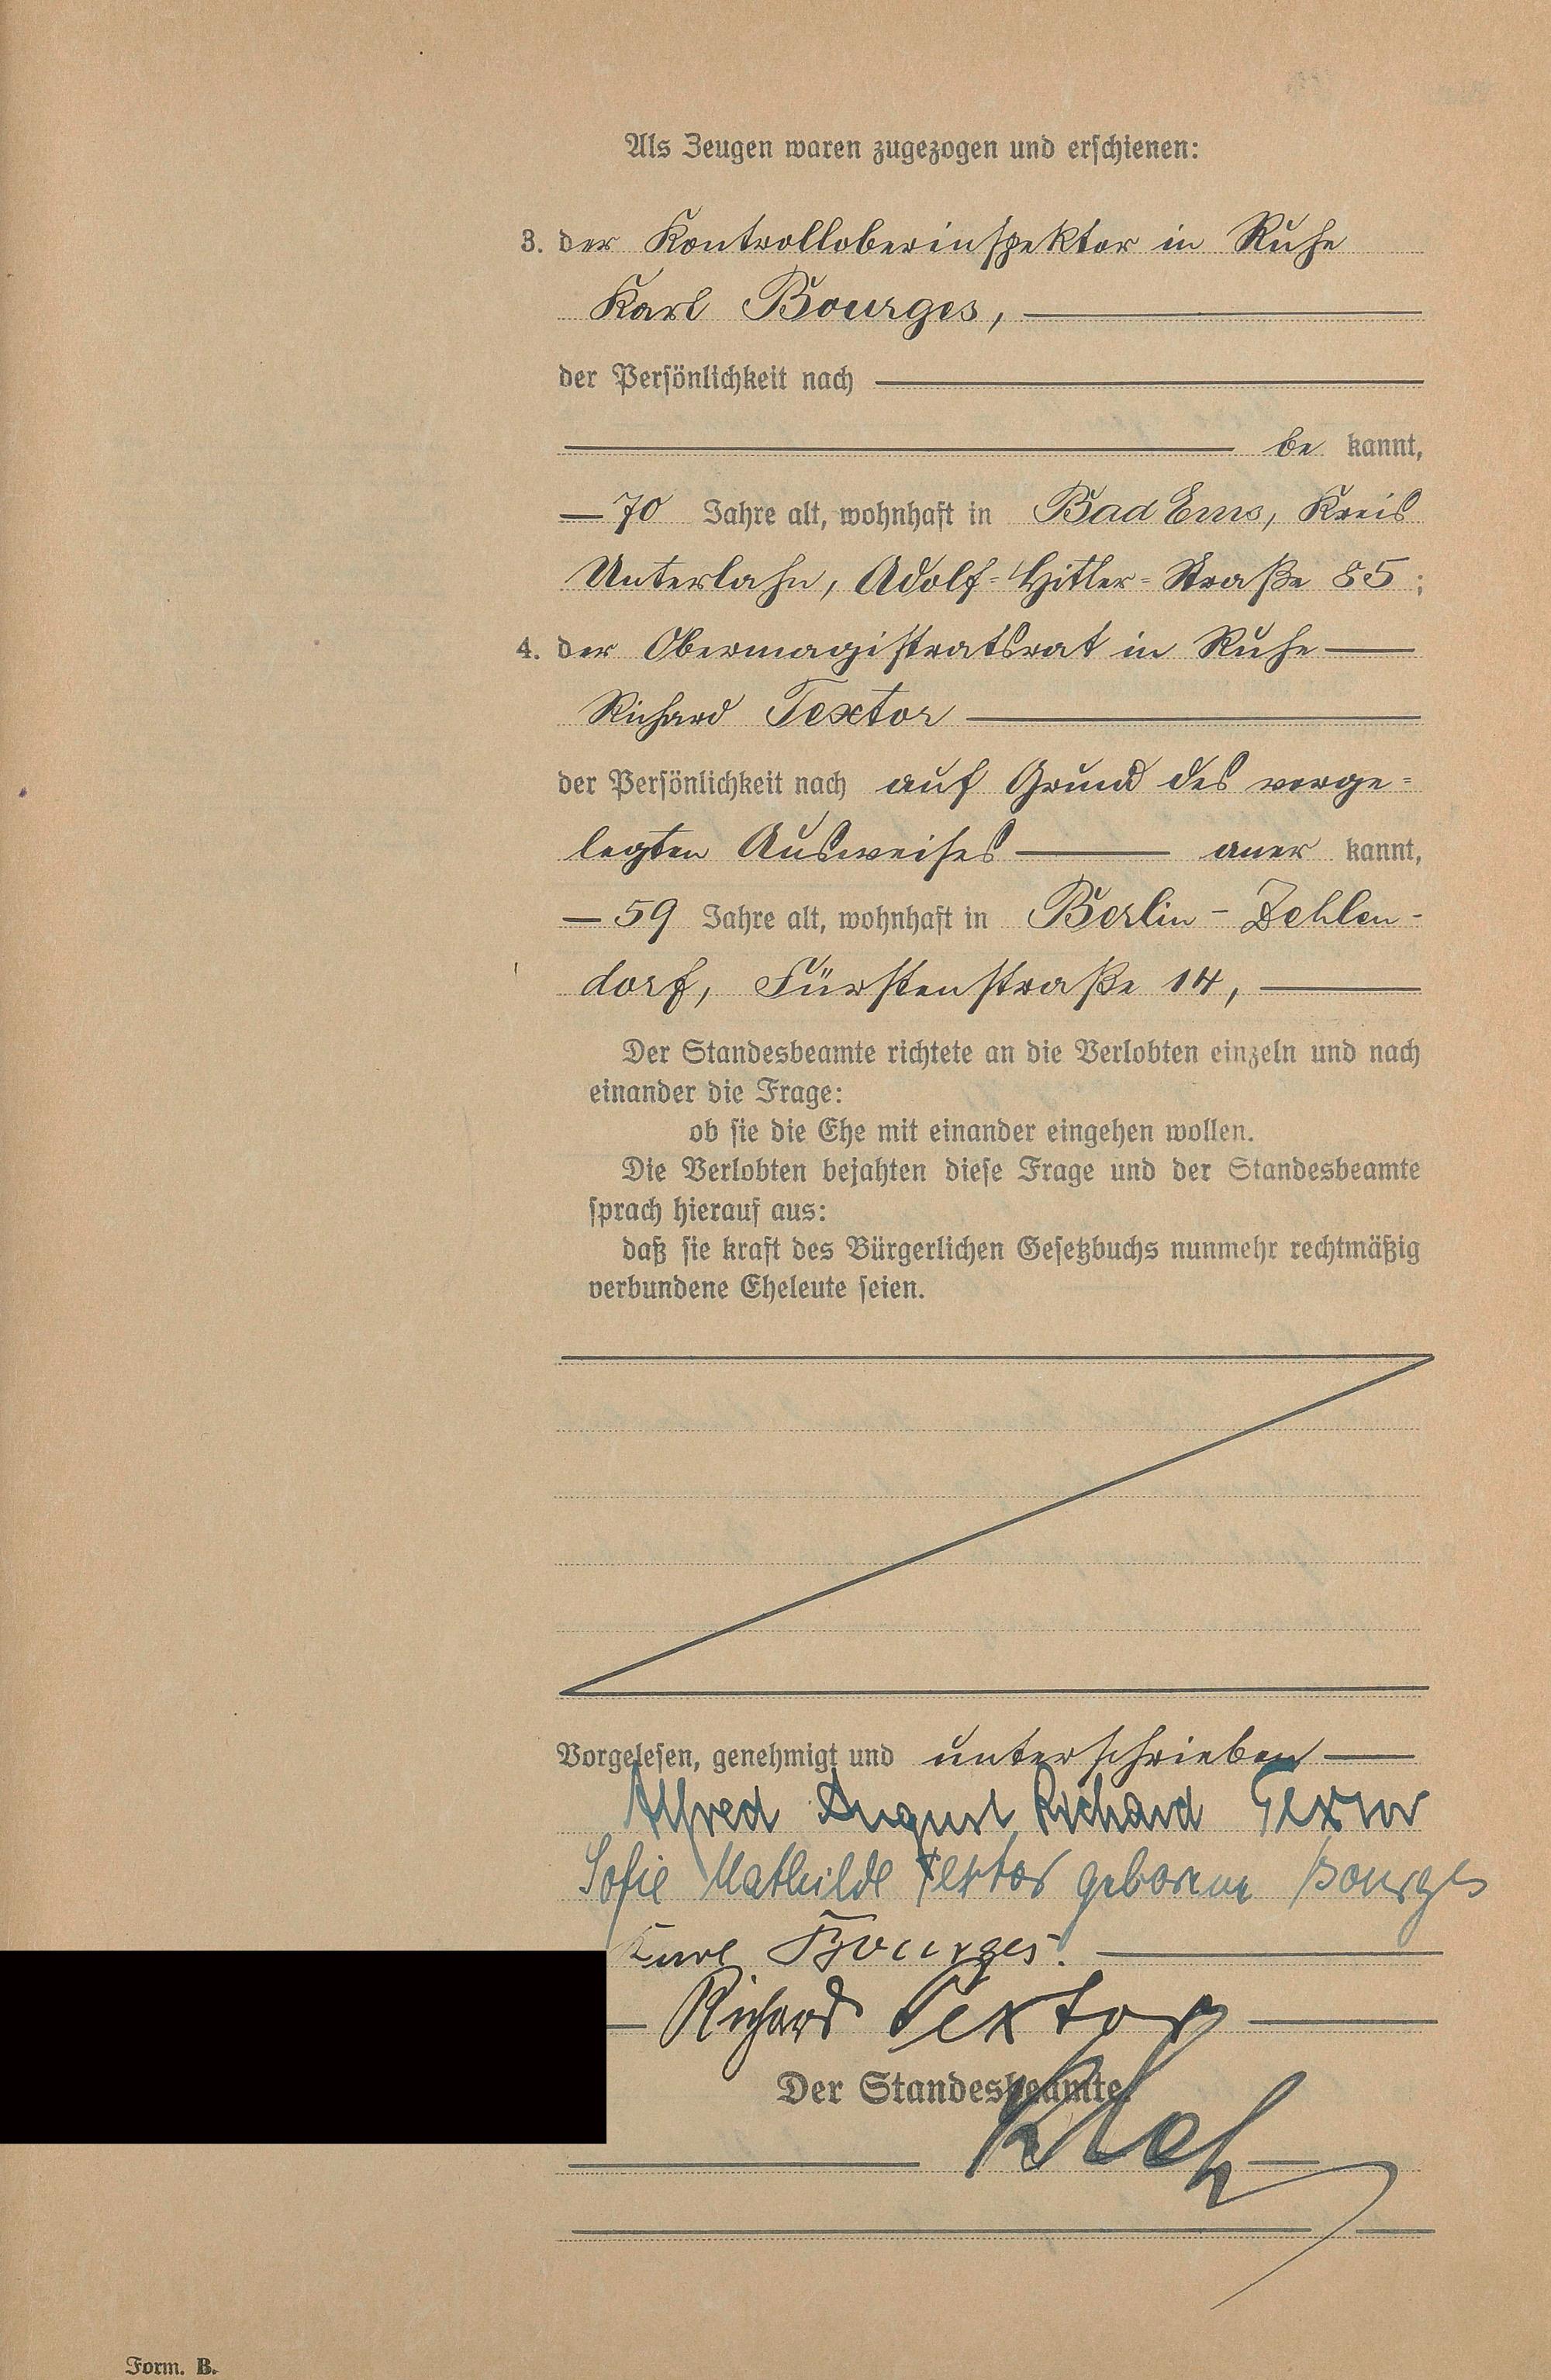 Als Zeugen waren zugezogen und erschienen:
3. der Kontrolloberinspektor in Ruhe
Karl Bourges,
der Persönlichkeit nach
be kannt,
70 Jahre alt, wohnhaft in Bad Ems, Kreis
Unterlahn, Adolf-Hitler-Straße 85;
4. der Obermagistratsrat in Ruhe
Richard Textor
der Persönlichkeit nach auf Grund des vorge-
legten Ausweises aner kannt,
59 Jahre alt, wohnhaft in Berlin-Zehlen-
dorf, Fürstenstraße 14,
Der Standesbeamte richtete an die Verlobten einzeln und nach
einander die Frage:
ob sie die Ehe mit einander eingehen wollen.
Die Verlobten bejahten diese Frage und der Standesbeamte
sprach hierauf aus:
daß sie kraft des Bürgerlichen Gesetzbuchs nunmehr rechtmäßig
verbundene Eheleute seien.
Vorgelesen, genehmigt und unterschrieben
Alfred August Richard Textor
Sofie Mathilde Textor geborene Bourges
Karl Bourges.
Richard Textor
Der Standesbeamte.
Form. B.